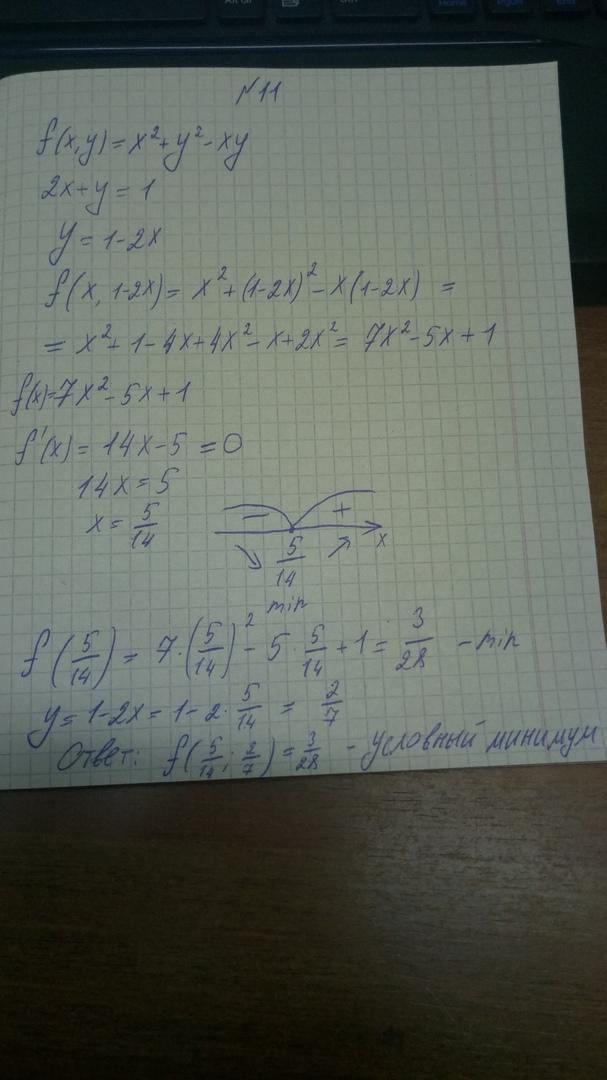 №11
f(x,y)=x²+y²-xy
2x+y=1
y=1-2x
f(x, 1-2x)= x²+(1-2x)²-x(1-2x) =
= x²+1-4x+4x²-x+2x²= 7x²-5x+1
f(x)=7x²-5x+1
f'(x)= 14x-5 =0
14x=5
x= 5/14
- +
5/14 x
min
f(5/14)= 7·(5/14)²- 5·5/14+1= 3/28 - min
y=1-2x=1-2·5/14 = 2/7
Ответ: f(5/14; 2/7)=3/28 - условный минимум